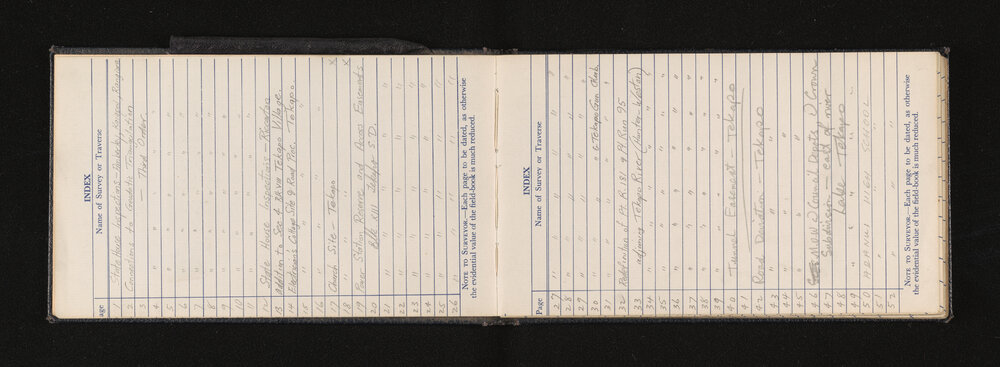 INDEX
Page Name of Survey or Traverse
1 State House Inspections
2 Connections to Geodetic Triangulation
3 — Third Order —
4 " " "
5 " " "
6 " " "
7 " " "
8 " " "
9 " " "
10 " " "
11 " " "
12 State House Inspections
13 Addition to Sec 4 Blk VII Tekapo Village
14 Site & Road Rec. Tekapo
15 " "
16 " "
17 Church Site — Tekapo x
18 " " x
19 Power Station Reserve and Access Easements
20 Blk XIII Tekapo S.D.
21 " " "
22 " " "
23 " " "
24 " " "
25 " " "
26 " " "
NOTE TO SURVEYOR.—Each page to be dated, as otherwise
the evidential value of the field-book is much reduced.
INDEX
Page Name of Survey or Traverse
27 " " "
28 " " "
29 " " "
30 " " " & Tekapo
31 " " "
32 Redefinition of Pt. R. 181 & Pt Run 95
33 adjoining Tekapo River (Hunter Weston)
34 " " "
35 " " "
36 " " "
37 " " "
38 " " "
39 " " "
40 Tunnel Easement — Tekapo
41
42 Road Deviation — Tekapo
43 " " "
44 " " "
45 " " "
46 M.O.W. & Council Depots & Crown
47 Subdivision — east of river
48 Lake Tekapo
49 " "
50 HIGH SCHOOL
51 " "
52 " "
NOTE TO SURVEYOR.—Each page to be dated, as otherwise
the evidential value of the field-book is much reduced.